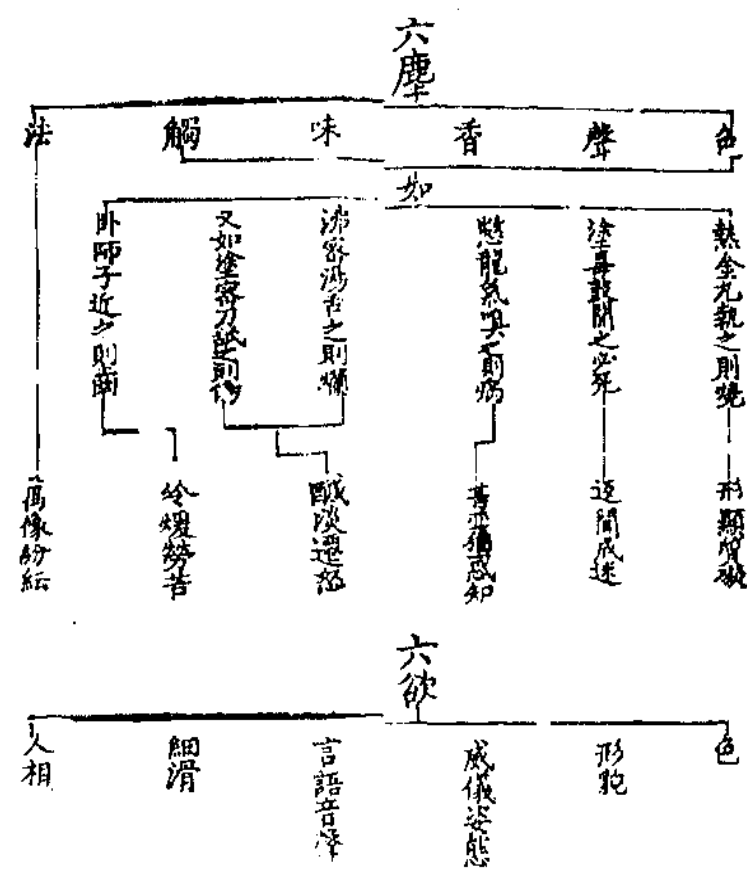 六塵
色
聲
香
味
觸
法
如
熱金丸執之則燒
塗毒鼓聞之必死
憋龍氣嗅之則病
沸蜜湯舌之則爛
又如塗蜜刀舐之則傷
臥師子近之則齧
形顯質礙
成迷
惑知
鹹淡遷
冷煖勞苦
萬像紛紜
六欲
色
形貌
威儀姿態
言語音聲
細滑
人相